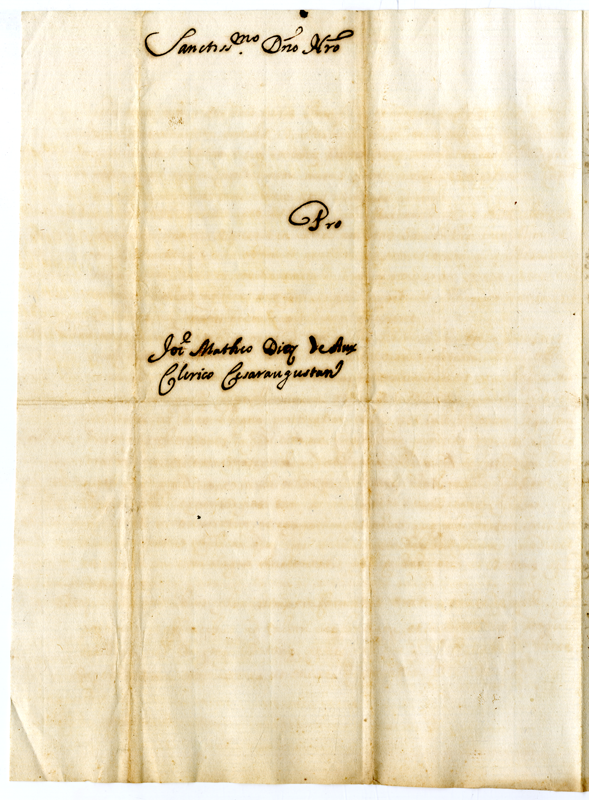 Sanctissmo. Dño Nrõ
Pro
Joẽ Matheo Diez de Aux
Clerico Cesaraugustan̄